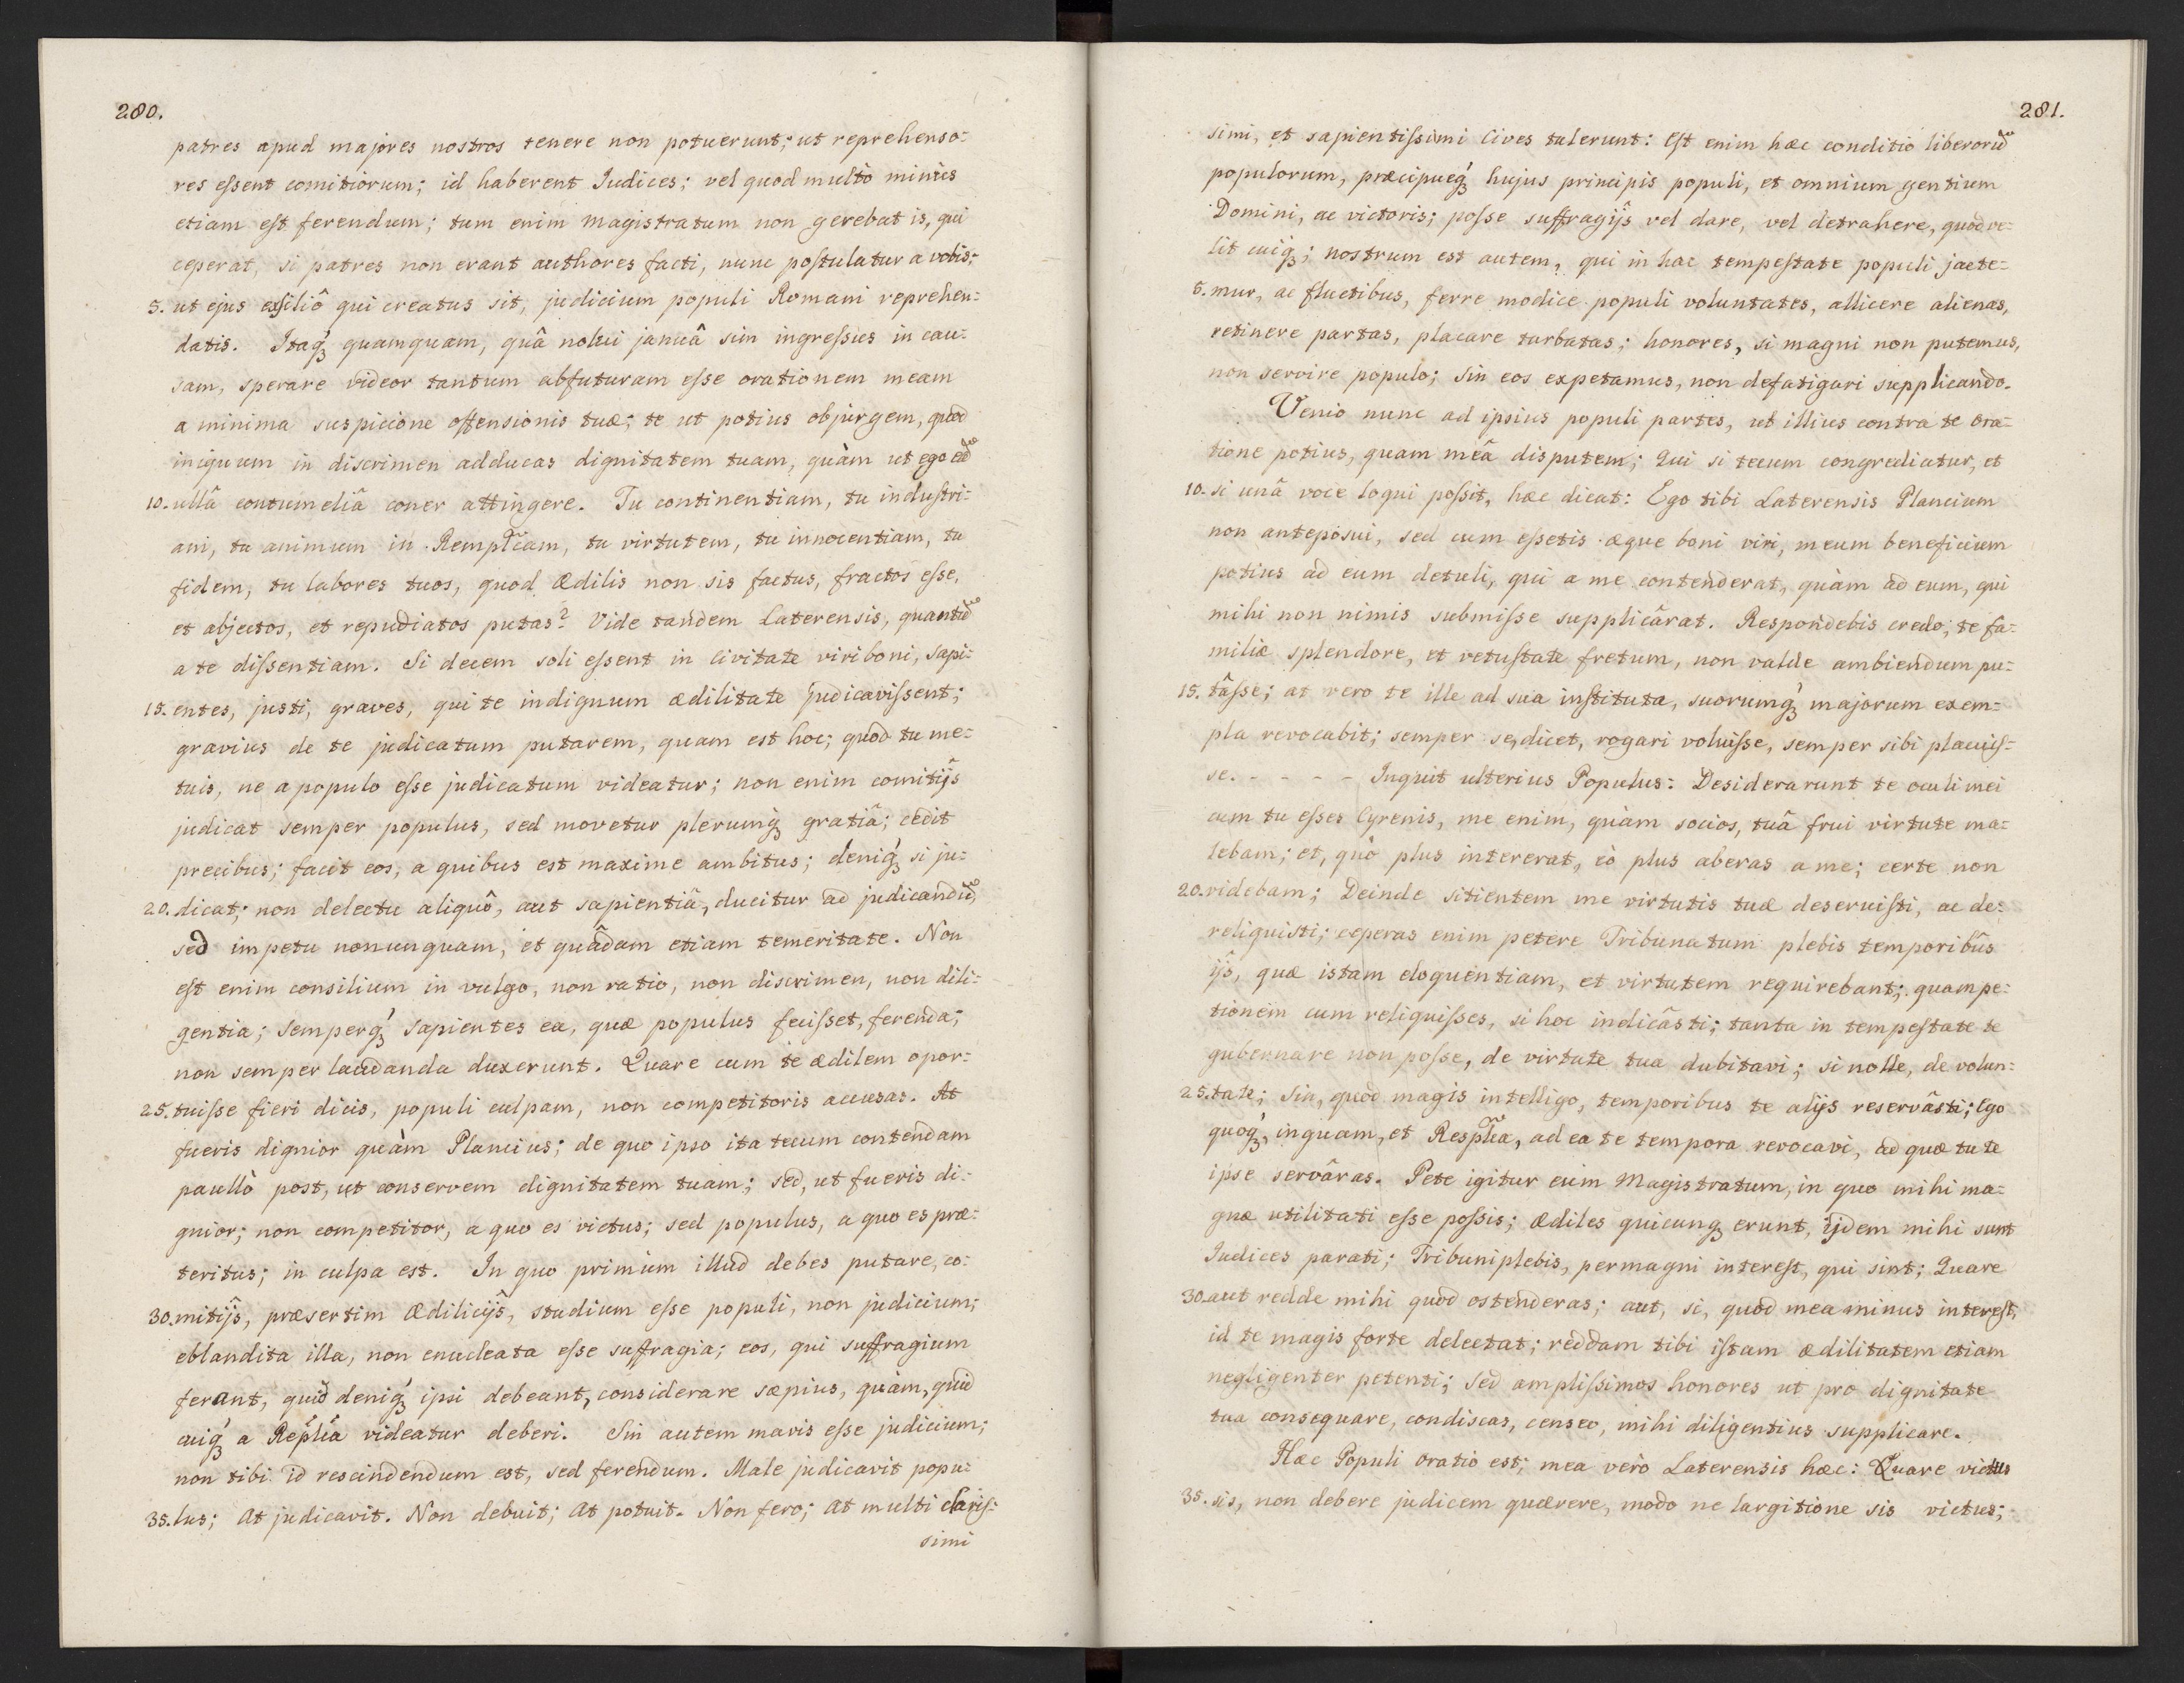 280.
patres apud majores nostros tenere non potuerunt; ut reprehenso=
res eſsent comitiorum; id haberent Iudices; vel quod multò minùs
etiam eſt ferendum; tum enim magistratum non gerebat is, qui
ceperat, si patres non erant authores facti, nunc poſtulatur a vobis;
5. ut ejus exſiliô qui creatus sit, judicium populi Romani reprehen=
datis. Itaq́ꝫ quamquam, quâ nolui januâ sim ingreſsus in cau=
sam, sperare videor tantum abfuturam eſse orationem meam
a minima suspicione offensionis tuæ; te ut potius objurgem, quod
iniquum in discrimen adducas dignitatem tuam, quàm ut ego eā
10. ullâ contumeliâ coner attingere. Tu continentiam, tu induſtri=
am, tu animum in Rempl̃icam, tu virtutem, tu innocentiam, tu
fidem, tu labores tuos, quod Ædilis non sis factus, fractos eſse,
et abjectos, et repudiatos putas? Vide tandem Laterensis, quantū
a te diſsentiam. Si decem soli eſsent in Civitate viri boni, sapi=
15. entes, justi, graves, qui te indignum ædilitate judicaviſsent;
gravius de te judicatum putarem, quam est hoc; quod tu me=
tuis, ne a populo eſse judicatum videatur; non enim comitijs
judicat semper populus, sed movetur plerumq́ꝫ gratiâ; cedit
precibus; facit eos, a quibus est maxime ambitus; deniq́ꝫ si ju=
20. dicat; non delectu aliquô, aut sapientiâ, ducitur ad judicandū,
sed impetu nonunquam, et quâdam etiam temeritate. Non
eſt enim consilium in vulgo, non ratio, non discrimen, non dili=
gentia; semperq́ꝫ sapientes ea, quæ populus feciſset, ferenda;
non semper laudanda duxerunt. Quare cum te ædilem opor=
25. tuiſse fieri dicis, populi culpam, non competitoris accusas. At
fueris dignior quàm Plancius; de quo ipso ita tecum contendam
paullò post, ut conservem dignitatem tuam; sed, ut fueris di=
gnior; non competitor, a quo es victus; sed populus, a quo es præ=
teritus; in culpa est. In quo primùm illud debes putare, co=
30. mitijs, præsertim Ædilicijs, studium eſse populi, non judicium;
eblandita illa, non enucleata eſse suffragia; eos, qui suffragium
ferant, quid deniq́ꝫ ipsi debeant, considerare sæpius, quàm, quid
cuiq́ꝫ a Repl̃ica videatur deberi. Sin autem mavis eſse judicium;
non tibi id rescindendum est, sed ferendum. Male judicavit popu=
35. lus; At judicavit. Non debuit; At potuit. Non fero; At multi clariſ=
simi
281.
simi, et sapientiſsimi Cives tulerunt: Eſt enim hæc conditio liberorū
populorum, præcipueq́ꝫ hujus principis populi, et omnium gentium
Domini, ac victoris; poſse suffragijs vel dare, vel detrahere, quod ve=
lit cuiqꝫ; nostrum est autem, qui in hac tempeſtate populi jacte=
5. mur, ac fluctibus, ferre modice populi voluntates, allicere alienas,
retinere partas, placare turbatas; honores, si magni non putemus,
non servire populo; sin eos expetamus, non defatigari supplicando.
Venio nunc ad ipsius populi partes, ut illius contra te ora=
tione potius, quam meâ disputem; Qui si tecum congrediatur, et
10. si unâ voce loqui poſsit, hæc dicat: Ego tibi Laterensis Plancium
non anteposui, sed cum eſsetis æque boni viri, meum beneficium
potius ad eum detuli, qui a me contenderat, quàm ad eum, qui
mihi non nimis submiſse supplicârat. Respondebis credo; te fa=
miliæ splendore, et vetuſtate fretum, non valde ambiendum pu=
15. tâſse; at vero te ille ad sua inſtituta, suorumq́ꝫ majorum exem=
pla revocabit; semper se, dicet, rogari voluiſse, semper sibi placuiſ=
se. - - - - Inquit ulterius Populus: Desiderarunt te oculi mei
cum tu eſses Cyrenis, me enim, quàm socios, tuâ frui virtute ma=
lebam; et, quò plus intererat, eò plus aberas a me; certe non
20. videbam; Deinde sitientem me virtutis tuæ deseruiſti, ac de=
reliquisti; ceperas enim petere Tribunatum plebis temporibus
ijs, quæ istam eloquentiam, et virtutem requirebant; quam pe=
tionem cum reliquiſses, si hoc indicâsti; tanta in tempeſtate te
gubernare non poſse, de virtute tua dubitavi; si nolle, de volun=
25. tate; Sin, quod magis intelligo, temporibus te alijs reservâsti; Ego
quoq́ꝫ, inquam, et Respl̃ica, ad ea te tempora revocavi, ad quæ tu te
ipse servâras. Pete igitur eum Magistratum, in quo mihi ma=
gnæ utilitati eſse poſsis; Ædiles quicunqꝫ erunt, ijdem mihi sunt
Iudices parati; Tribuni plebis, permagni intereſt, qui sint; Quare
30. aut redde mihi quod ostenderas; aut, si, quod mea minus intereſt,
id te magis forte delectat; reddam tibi iſtam ædilitatem etiam
negligenter petenti; Sed ampliſsimos honores ut pro dignitate
tua consequare, condiscas, censeo, mihi diligentius supplicare.
Hæc Populi oratio est; mea verò Laterensis hæc: Quare victus
35. sis, non debere judicem quærere, modo ne largitione sis victus;